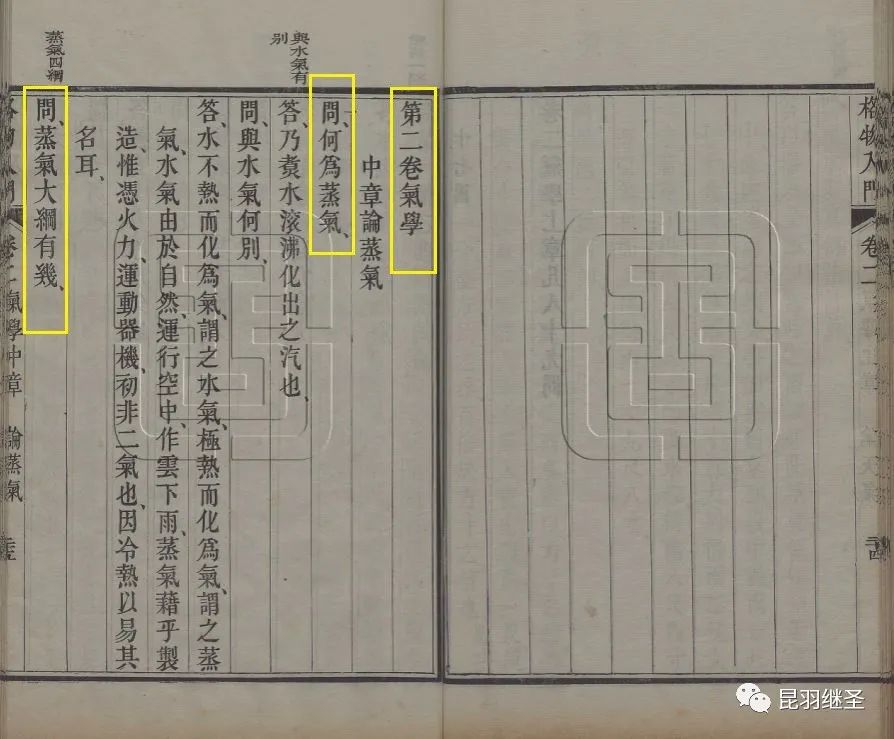 格物入門 卷二
第二卷氣學
中章論蒸氣
問、何爲蒸氣、
答、乃煑水滚沸化出之汽也、
與水氣有
别
問、與水氣何別、
答、水不熱而化爲氣、謂之水氣、極熱而化爲氣、謂之蒸
氣、水氣由於自然、運行空中、作雲下雨、蒸氣藉乎製
造、惟憑火力、運動器機、初非二氣也、因冷熱以易其
名耳、
蒸氣四綱
問、蒸氣大綱有幾、
格物入門 卷二 氣學中章 論蒸氣
昆羽继圣